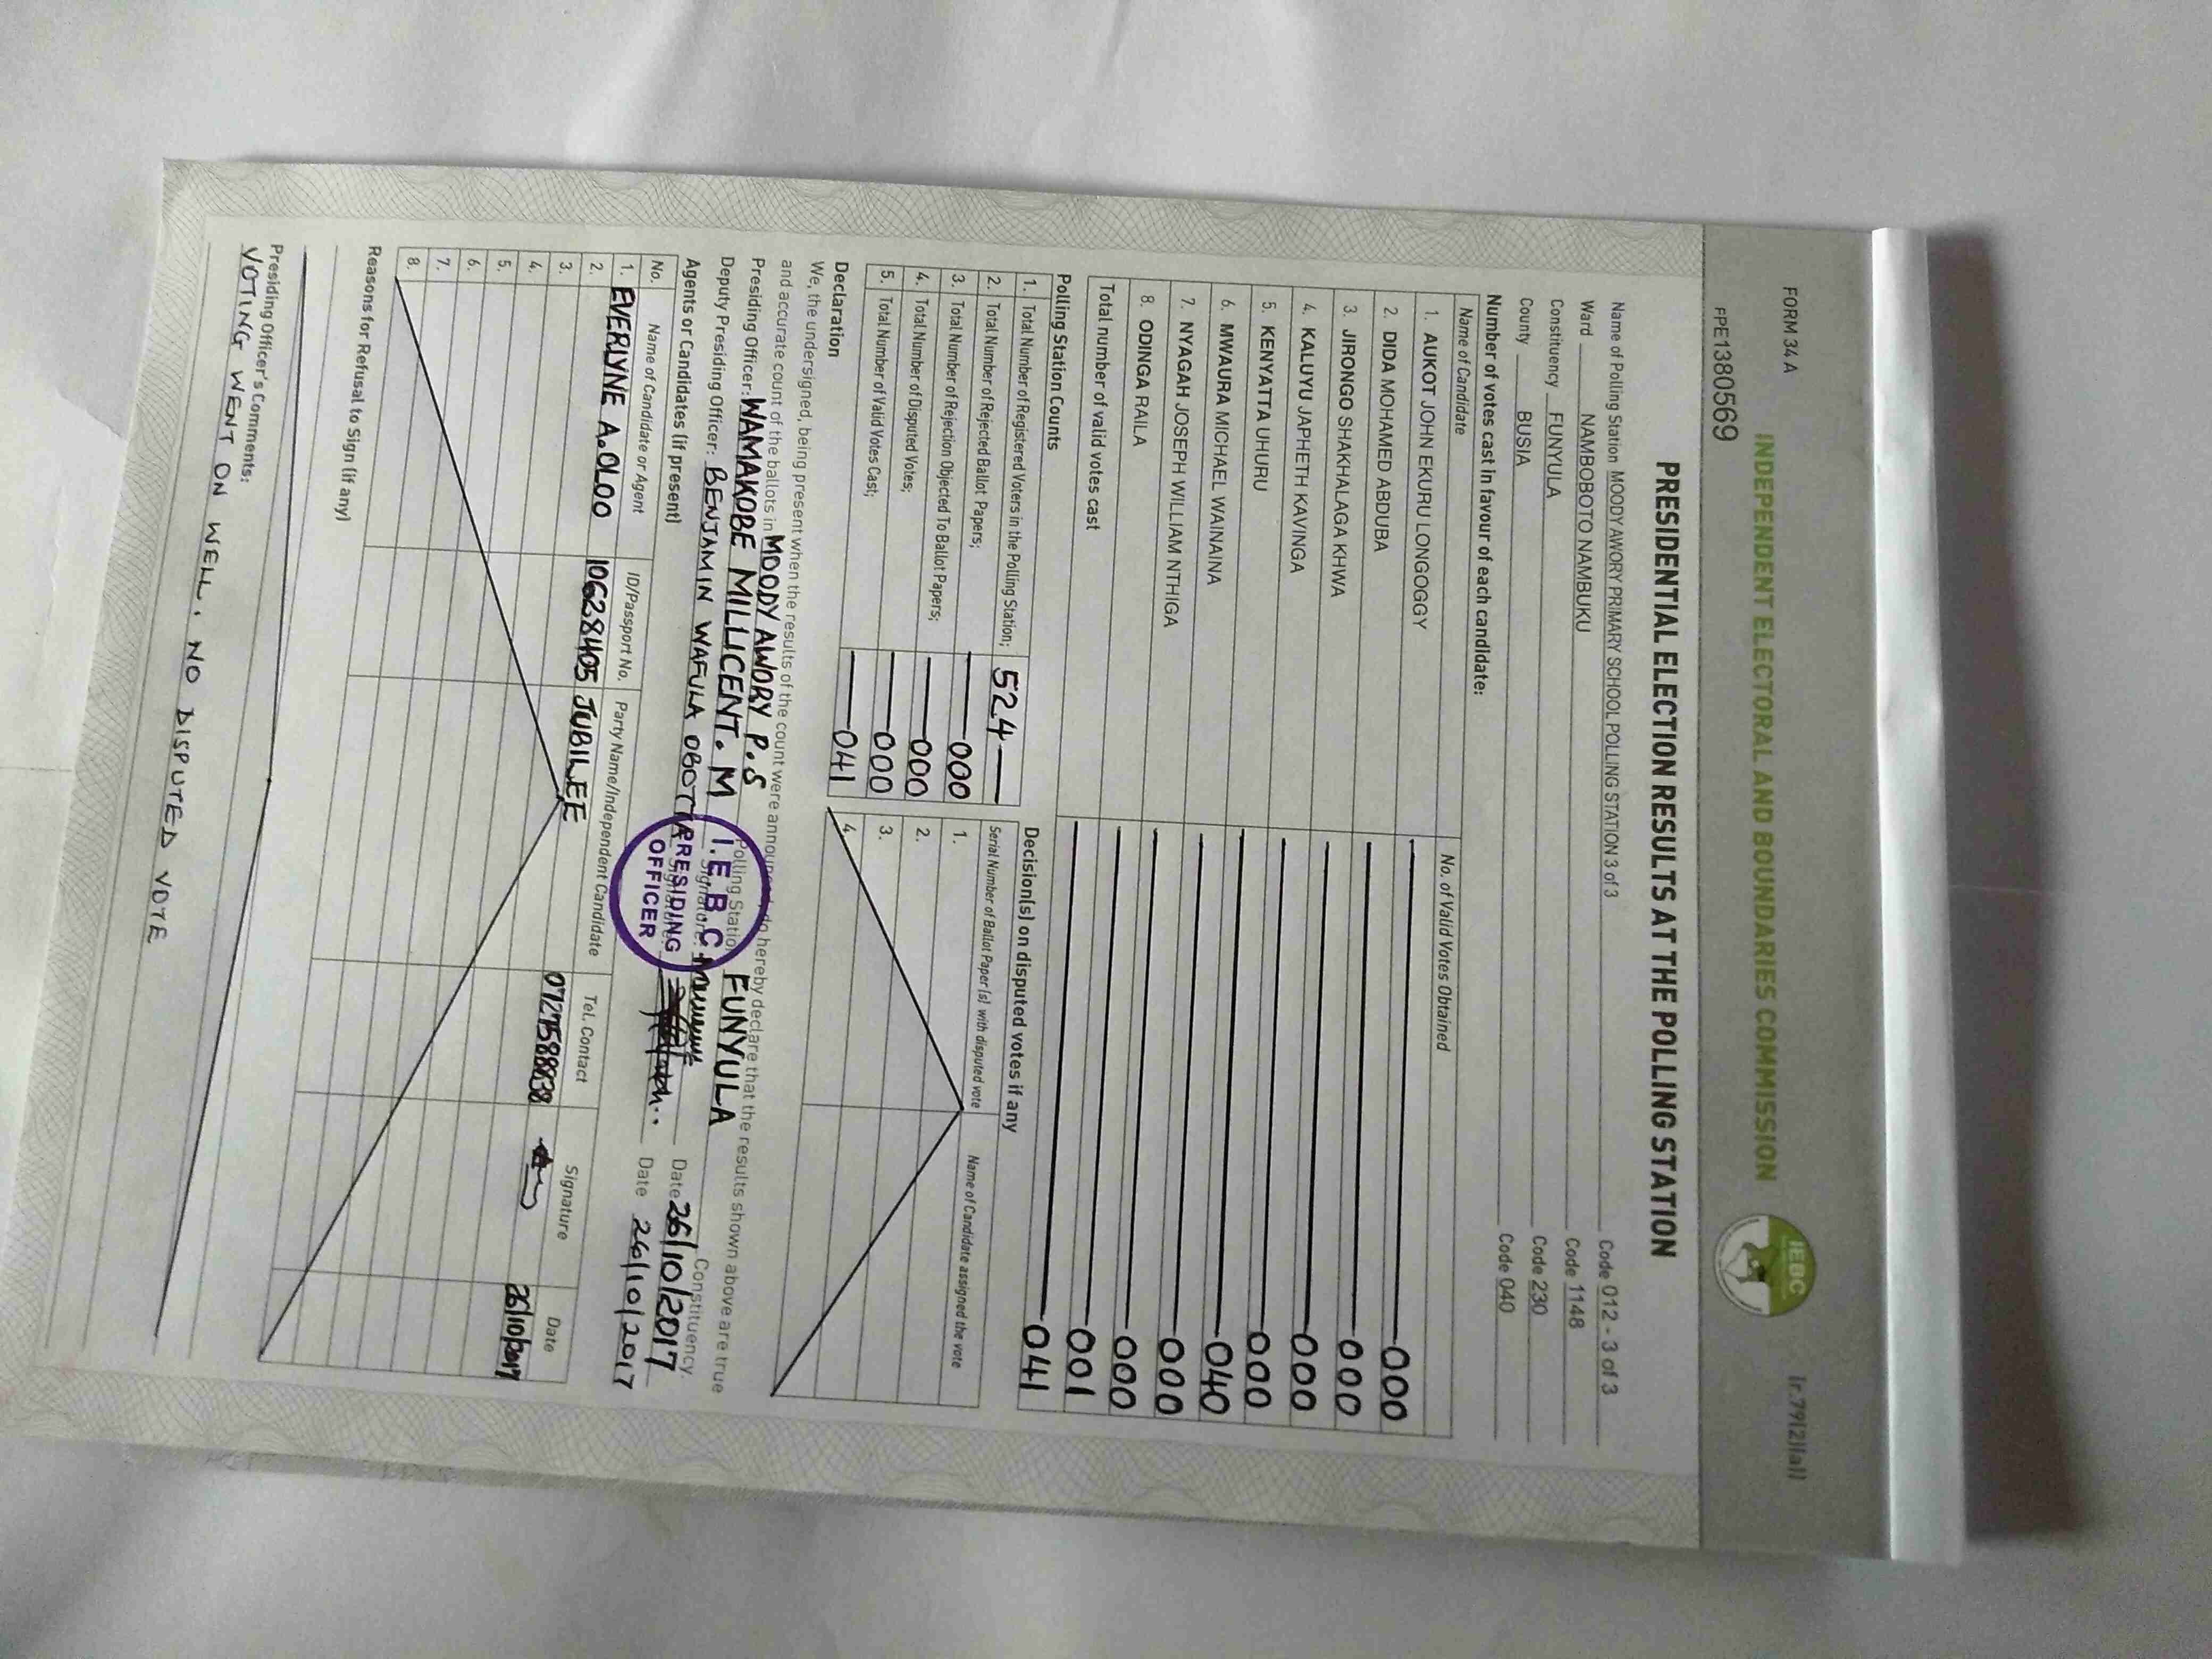 FORM 34 A
(r.79(2)(a))
INDEPENDENT ELECTORAL AND BOUNDARIES COMMISSION
IEBC
FPE1380569
PRESIDENTIAL ELECTION RESULTS AT THE POLLING STATION
Name of Polling Station MOODY AWORY PRIMARY SCHOOL POLLING STATION 3 of 3 Code 012 - 3 of 3
Ward NAMBOBOTO NAMBUKU Code 1148
Constituency FUNYULA Code 230
County BUSIA Code 040
Number of votes cast in favour of each candidate:
Name of Candidate No. of Valid Votes Obtained
1. AUKOT JOHN EKURU LONGOGGY 000
2. DIDA MOHAMED ABDUBA 000
3. JIRONGO SHAKHALAGA KHWA 000
4. KALUYU JAPHETH KAVINGA 000
5. KENYATTA UHURU 040
6. MWAURA MICHAEL WAINAINA 000
7. NYAGAH JOSEPH WILLIAM NTHIGA 000
8. ODINGA RAILA 001
Total number of valid votes cast 041
Polling Station Counts
1. Total Number of Registered Voters in the Polling Station; 524
2. Total Number of Rejected Ballot Papers; 000
3. Total Number of Rejection Objected To Ballot Papers; 000
4. Total Number of Disputed Votes; 000
5. Total Number of Valid Votes Cast; 041
Decision(s) on disputed votes if any
Serial Number of Ballot Paper (s) with disputed vote Name of Candidate assigned the vote
1.
2.
3.
4.
Declaration
We, the undersigned, being present when the results of the count were announced, do hereby declare that the results shown above are true
and accurate count of the ballots in MOODY AWORY P.S Polling Station FUNYULA Constituency
Presiding Officer: WAMAKOBE MILLICENT. M Signature: Date 26/10/2017
Deputy Presiding Officer: BENJAMIN WAFULA OBOTTA Signature: Date 26/10/2017
I.E.B.C
PRESIDING
OFFICER
Agents or Candidates (if present)
No. Name of Candidate or Agent ID/Passport No. Party Name/Independent Candidate Tel. Contact Signature Date
1. EVERLYNE A.OLOO 10628405 JUBILEE 0727588838 26/10/2017
2.
3.
4.
5.
6.
7.
8.
Reasons for Refusal to Sign (if any)
Presiding Officer's Comments:
VOTING WENT ON WELL, NO DISPUTED VOTE